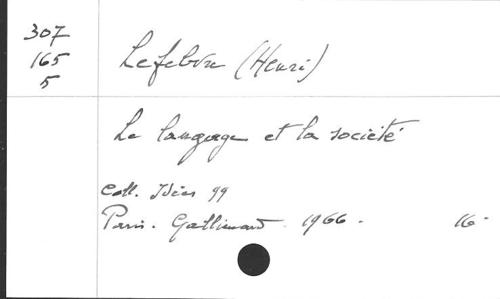 307
165
5
Lefebvre (Henri)
Le langage et la société
Coll. Idées 99
Paris. Gallimard. 1966. 16